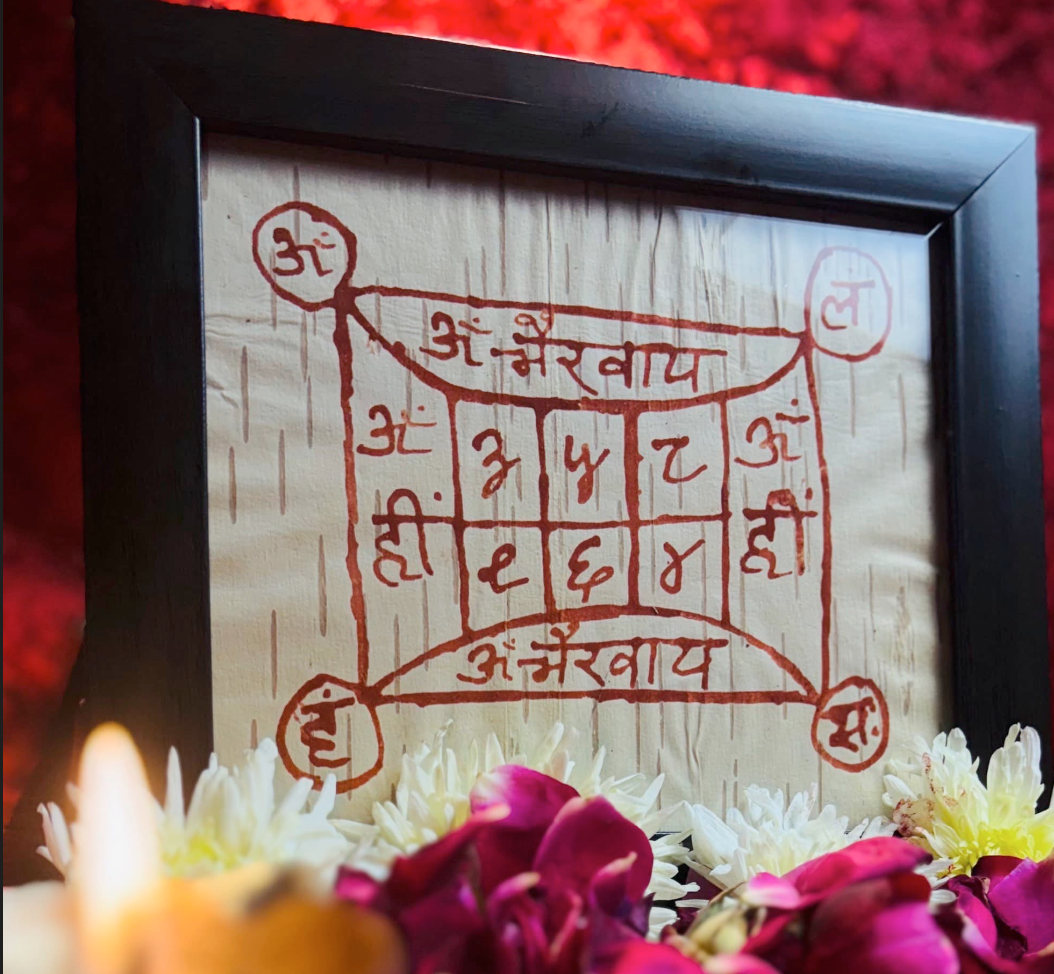 अं ल
अं भैरवाय
अं ३ ५ ८ अं
हीं १ ६ ४ हीं
अं भैरवाय
हं सः